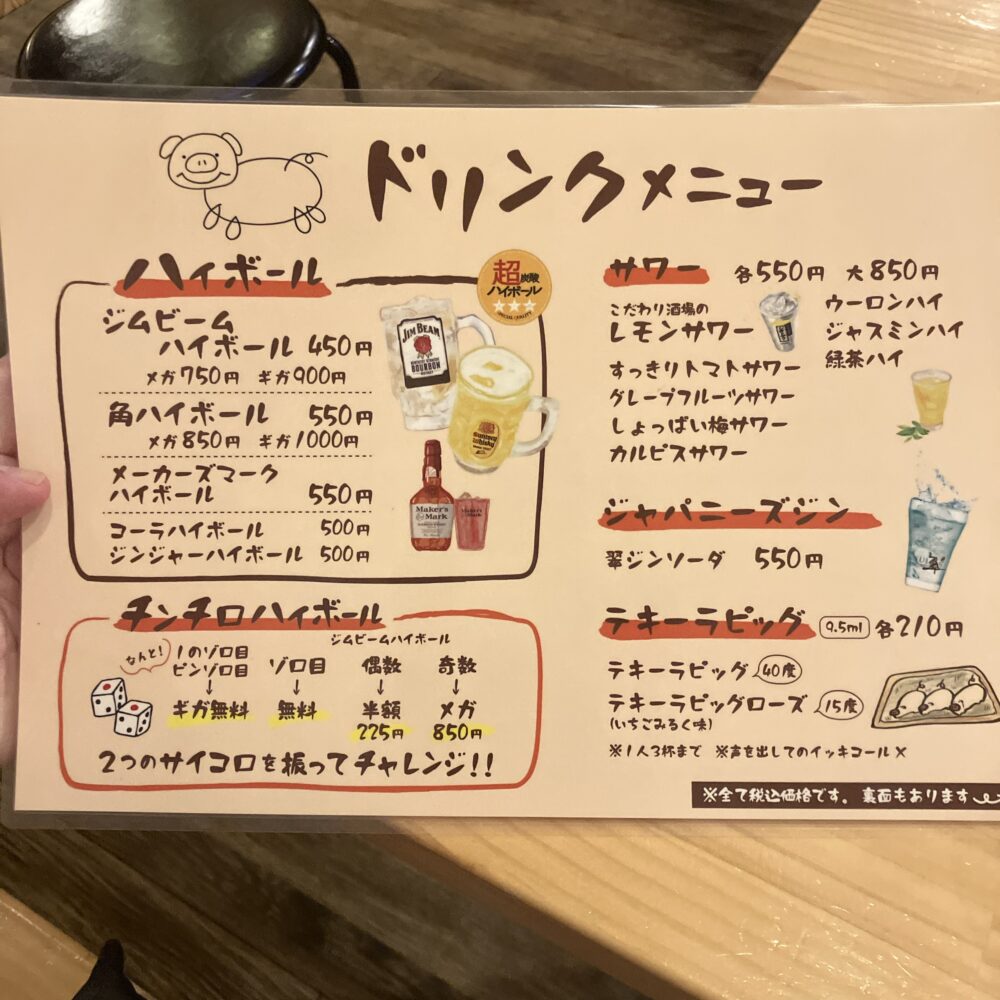 ドリンクメニュー
ハイボール
超炭酸
ハイボール
ジムビーム
ハイボール 450円
メガ750円 ギガ900円
角ハイボール 550円
メガ850円 ギガ1000円
メーカーズマーク
ハイボール 550円
コーラハイボール 500円
ジンジャーハイボール 500円
JIM BEAM
BOURBON
Suntory
Whisky
Maker's
Mark
チンチロハイボール
ジムビームハイボール
なんと!
1のゾロ目
ピンゾロ目 ゾロ目 偶数 奇数
↓ ↓ ↓ ↓
ギガ無料 無料 半額 メガ
225円 850円
2つのサイコロを振ってチャレンジ!!
サワー 各550円 大850円
こだわり酒場の
レモンサワー
すっきりトマトサワー
グレープフルーツサワー
しょっぱい梅サワー
カルピスサワー
ウーロンハイ
ジャスミンハイ
緑茶ハイ
ジャパニーズジン
翠ジンソーダ 550円
翠
テキーラピッグ 9.5ml 各210円
テキーラピッグ 40度
テキーラピッグローズ 15度
(いちごみるく味)
※1人3杯まで ※声を出してのイッキコール×
※全て税込価格です。裏面もあります